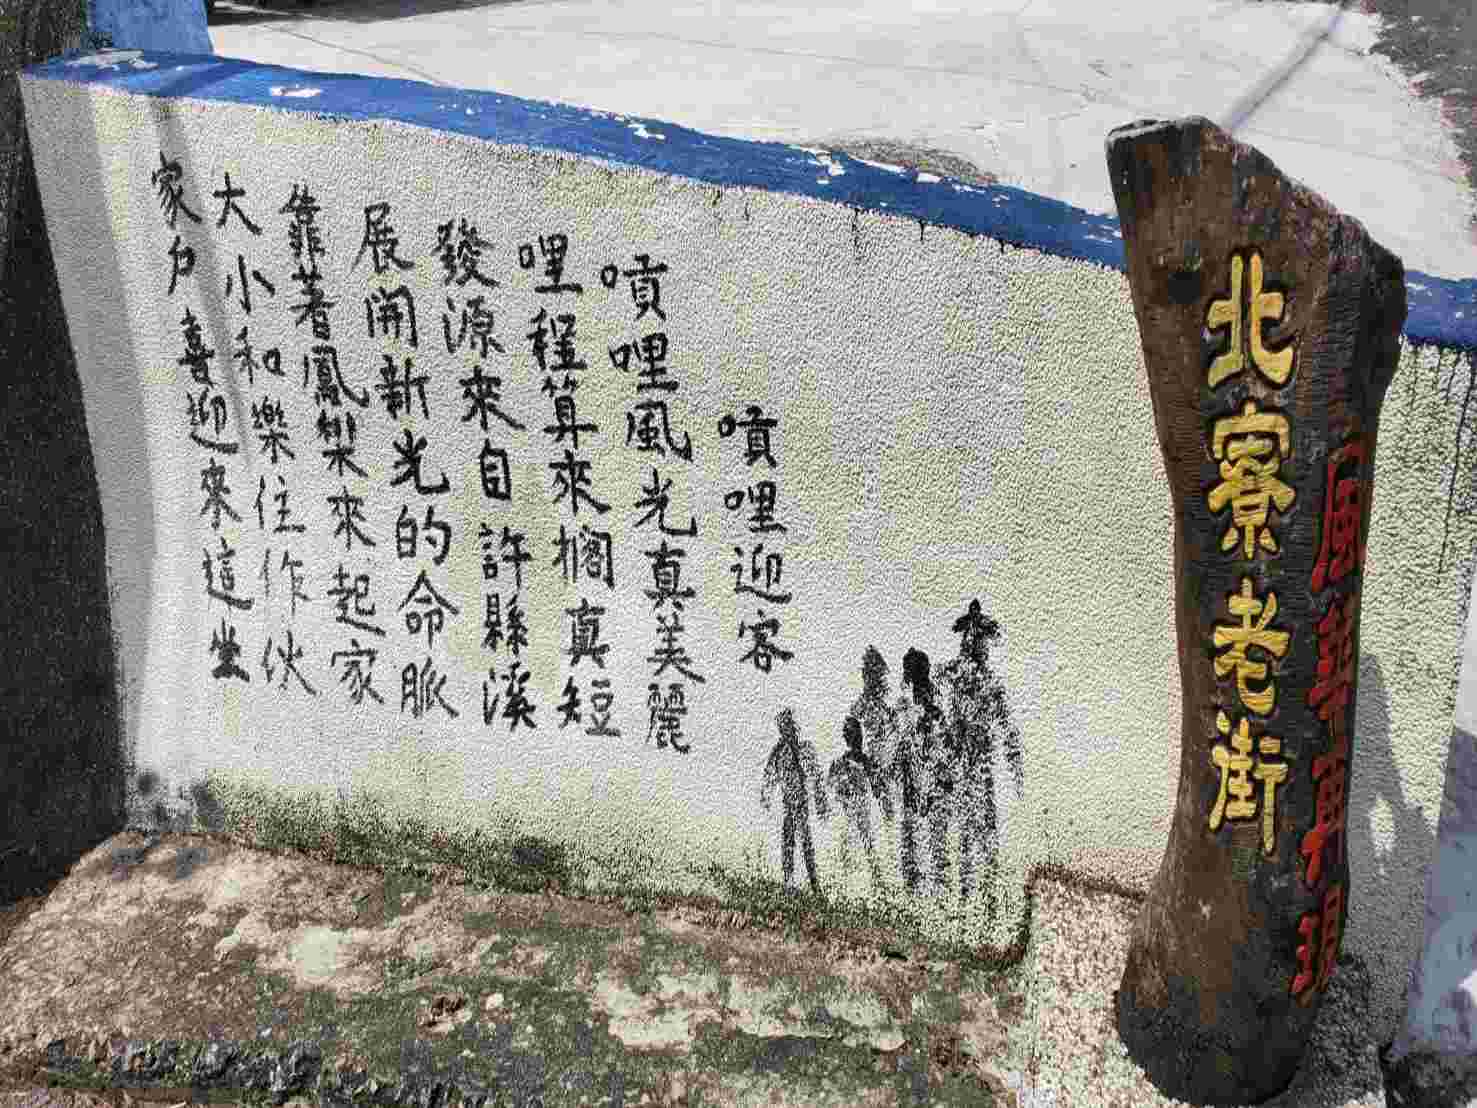 噴哩迎客
噴哩風光真美麗
哩程算來擱真短
發源來自許縣溪
展開新光的命脈
靠著鳳梨來起家
大小和樂住作伙
家戶喜迎來這坐
北寮老街
風華再現